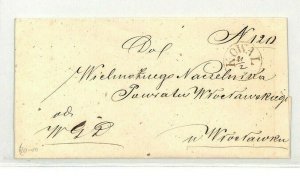 N 120
Do
KOWAL
Wielmożnego Naczelnika
Powiatu Włocławskiego
od
W G P
w Włocławku